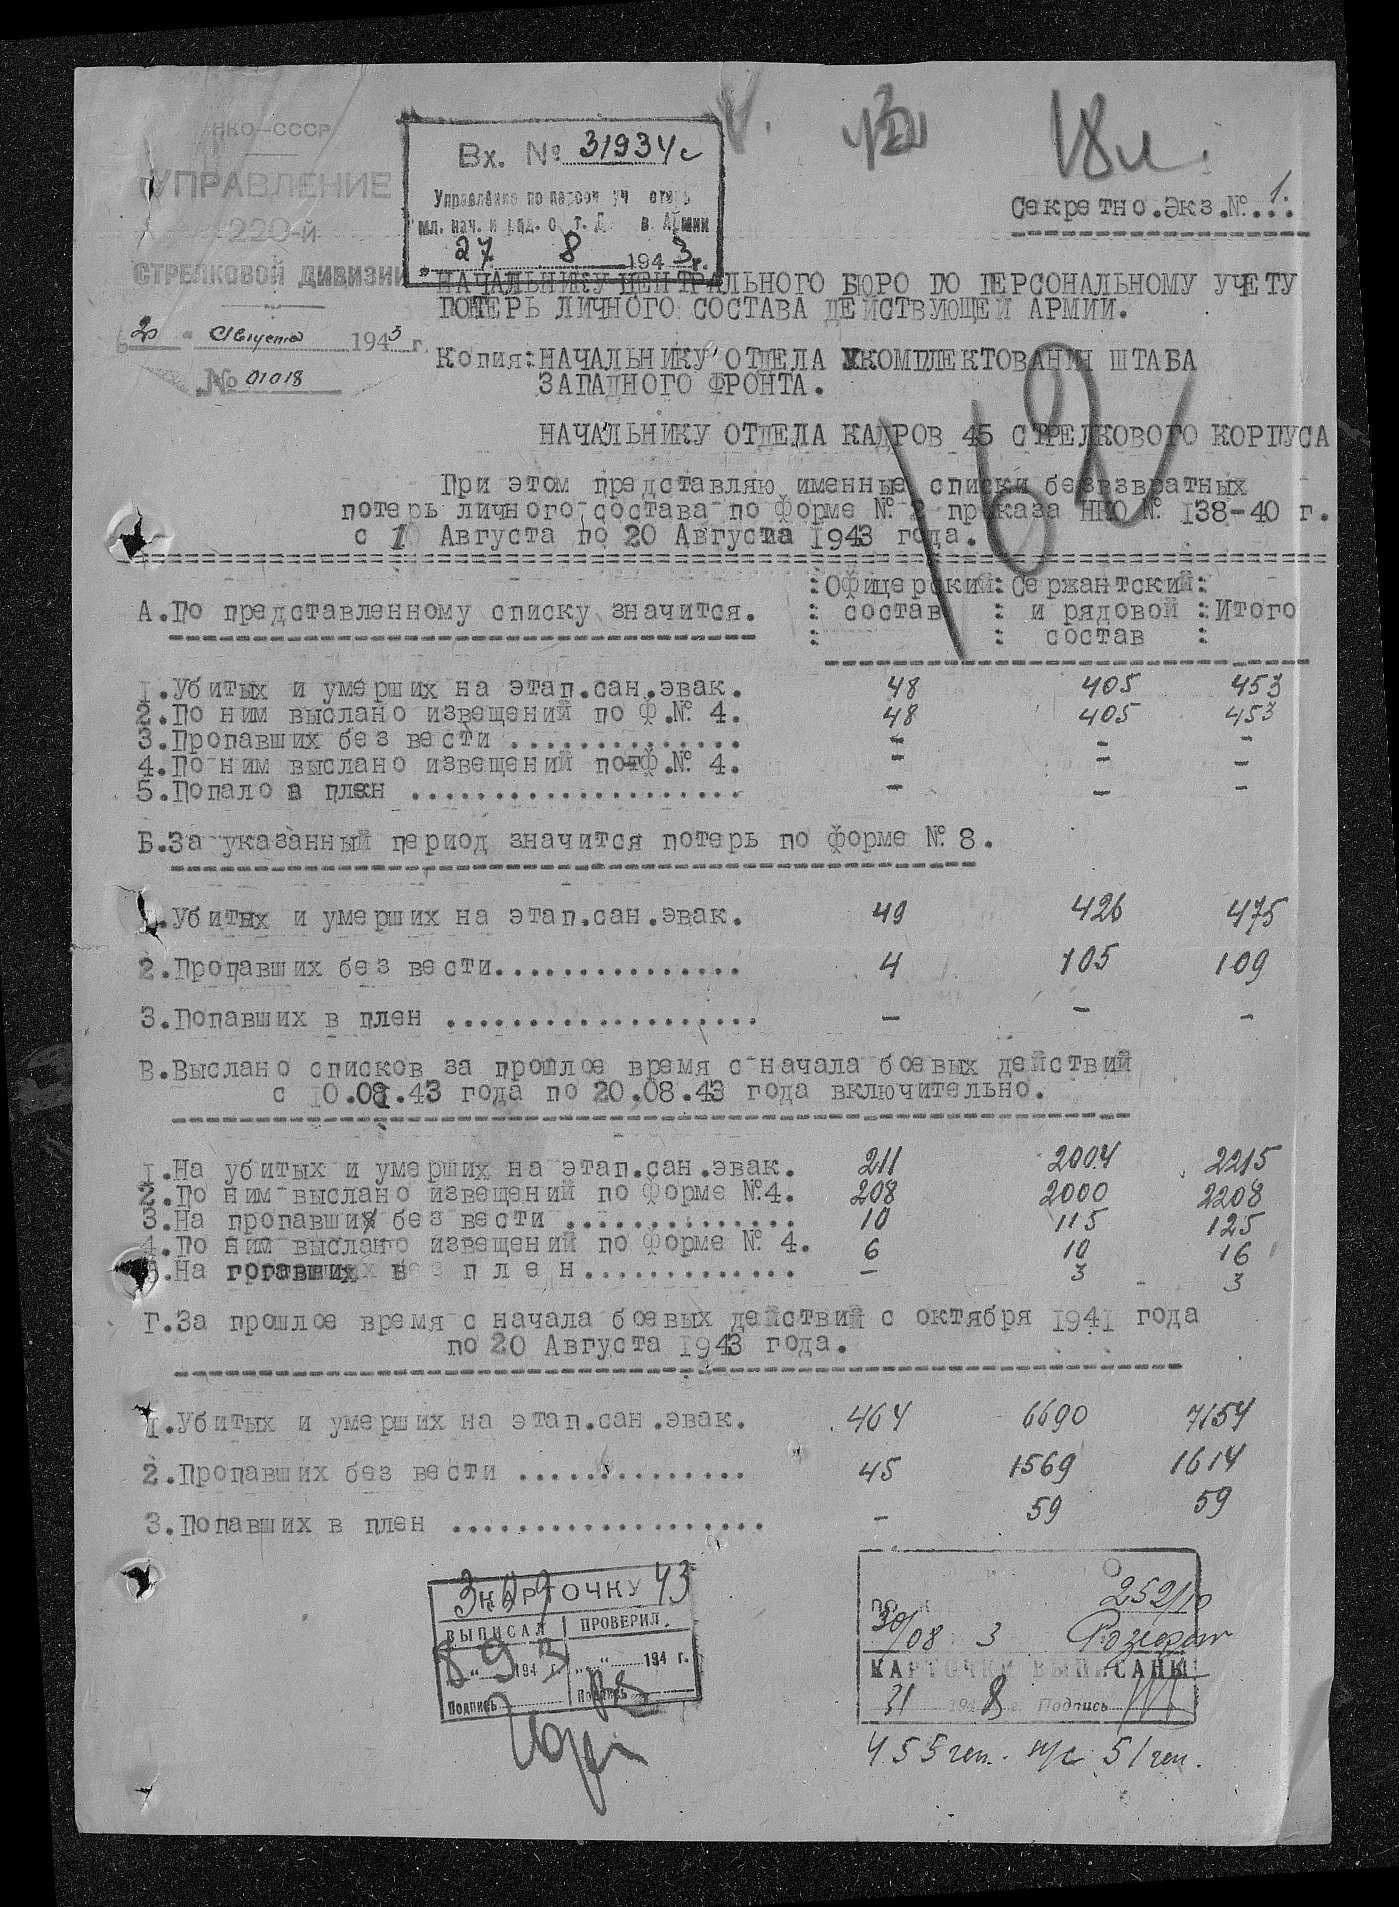 НКО-СССР
УПРАВЛЕНИЕ
220-й
СТРЕЛКОВОЙ ДИВИЗИИ
20 Августа 1943 г.
№ 01018
Вх. № 31934с
Управление по персон уч
мл. нач. и ряд. Армии
„27 8 1943г.
18л.
Секретно.Экз.№.1.
НАЧАЛЬНИКУ ЦЕНТРАЛЬНОГО БЮРО ПО ПЕРСОНАЛЬНОМУ УЧЕТУ
ПОТЕРЬ ЛИЧНОГО СОСТАВА ДЕЙСТВУЮЩЕЙ АРМИИ.
Копия:НАЧАЛЬНИКУ ОТДЕЛА УКОМПЛЕКТОВАНИЯ ШТАБА
ЗАПАДНОГО ФРОНТА.
НАЧАЛЬНИКУ ОТДЕЛА КАДРОВ 45 СТРЕЛКОВОГО КОРПУСА
При этом представляю именные списки безвзвратных
потерь личного состава по форме № 2 приказа НКО № 138-40 г.
с 10 Августа по 20 Августа 1943 года.
:Офицерский:Сержантский:
А.По представленному списку значится. : состав : и рядовой :Итого
: : состав :
1.Убитых и умерших на этап.сан.эвак. 48 405 453
2.По ним выслано извещений по Ф.№ 4. 48 405 453
3.Пропавших без вести .............. - - -
4.По ним выслано извещений по ф.№ 4. - - -
5.Попало в плен .................... - - -
Б.За указанный период значится потерь по форме № 8.
1.Убитых и умерших на этап.сан.эвак. 49 426 475
2.Пропавших без вести............... 4 105 109
3.Попавших в плен ................... - - -
В.Выслано списков за прошлое время с начала боевых действий
с 10.08.43 года по 20.08.43 года включительно.
1.На убитых и умерших на этап.сан.эвак. 211 2004 2215
2.По ним выслано извещений по форме №4. 208 2000 2208
3.На пропавших без вести .............. 10 115 125
4.По ним выслано извещений по форме № 4. 6 10 16
5.На в плен............. - 3 3
Г.За прошлое время с начала боевых действий с октября 1941 года
по 20 Августа 1943 года.
1.Убитых и умерших на этап.сан.эвак. 464 6690 7154
2.Пропавших без вести .............. 45 1569 1614
3.Попавших в плен ................... - 59 59
КАРТОЧКУ 43
ВЫПИСАЛ ПРОВЕРИЛ.
8 „9 1943 г. „ “ 194 г.
Подпись Подпись
252/10
30/08 3
КАРТОЧКИ ВЫПИСАНЫ
31 194 8 г. Подпись
455 чел. н/с 51 чел.